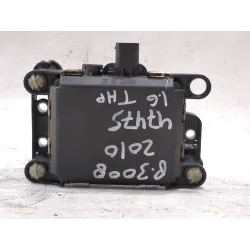 P.3008
2010
47475
1.6 THP